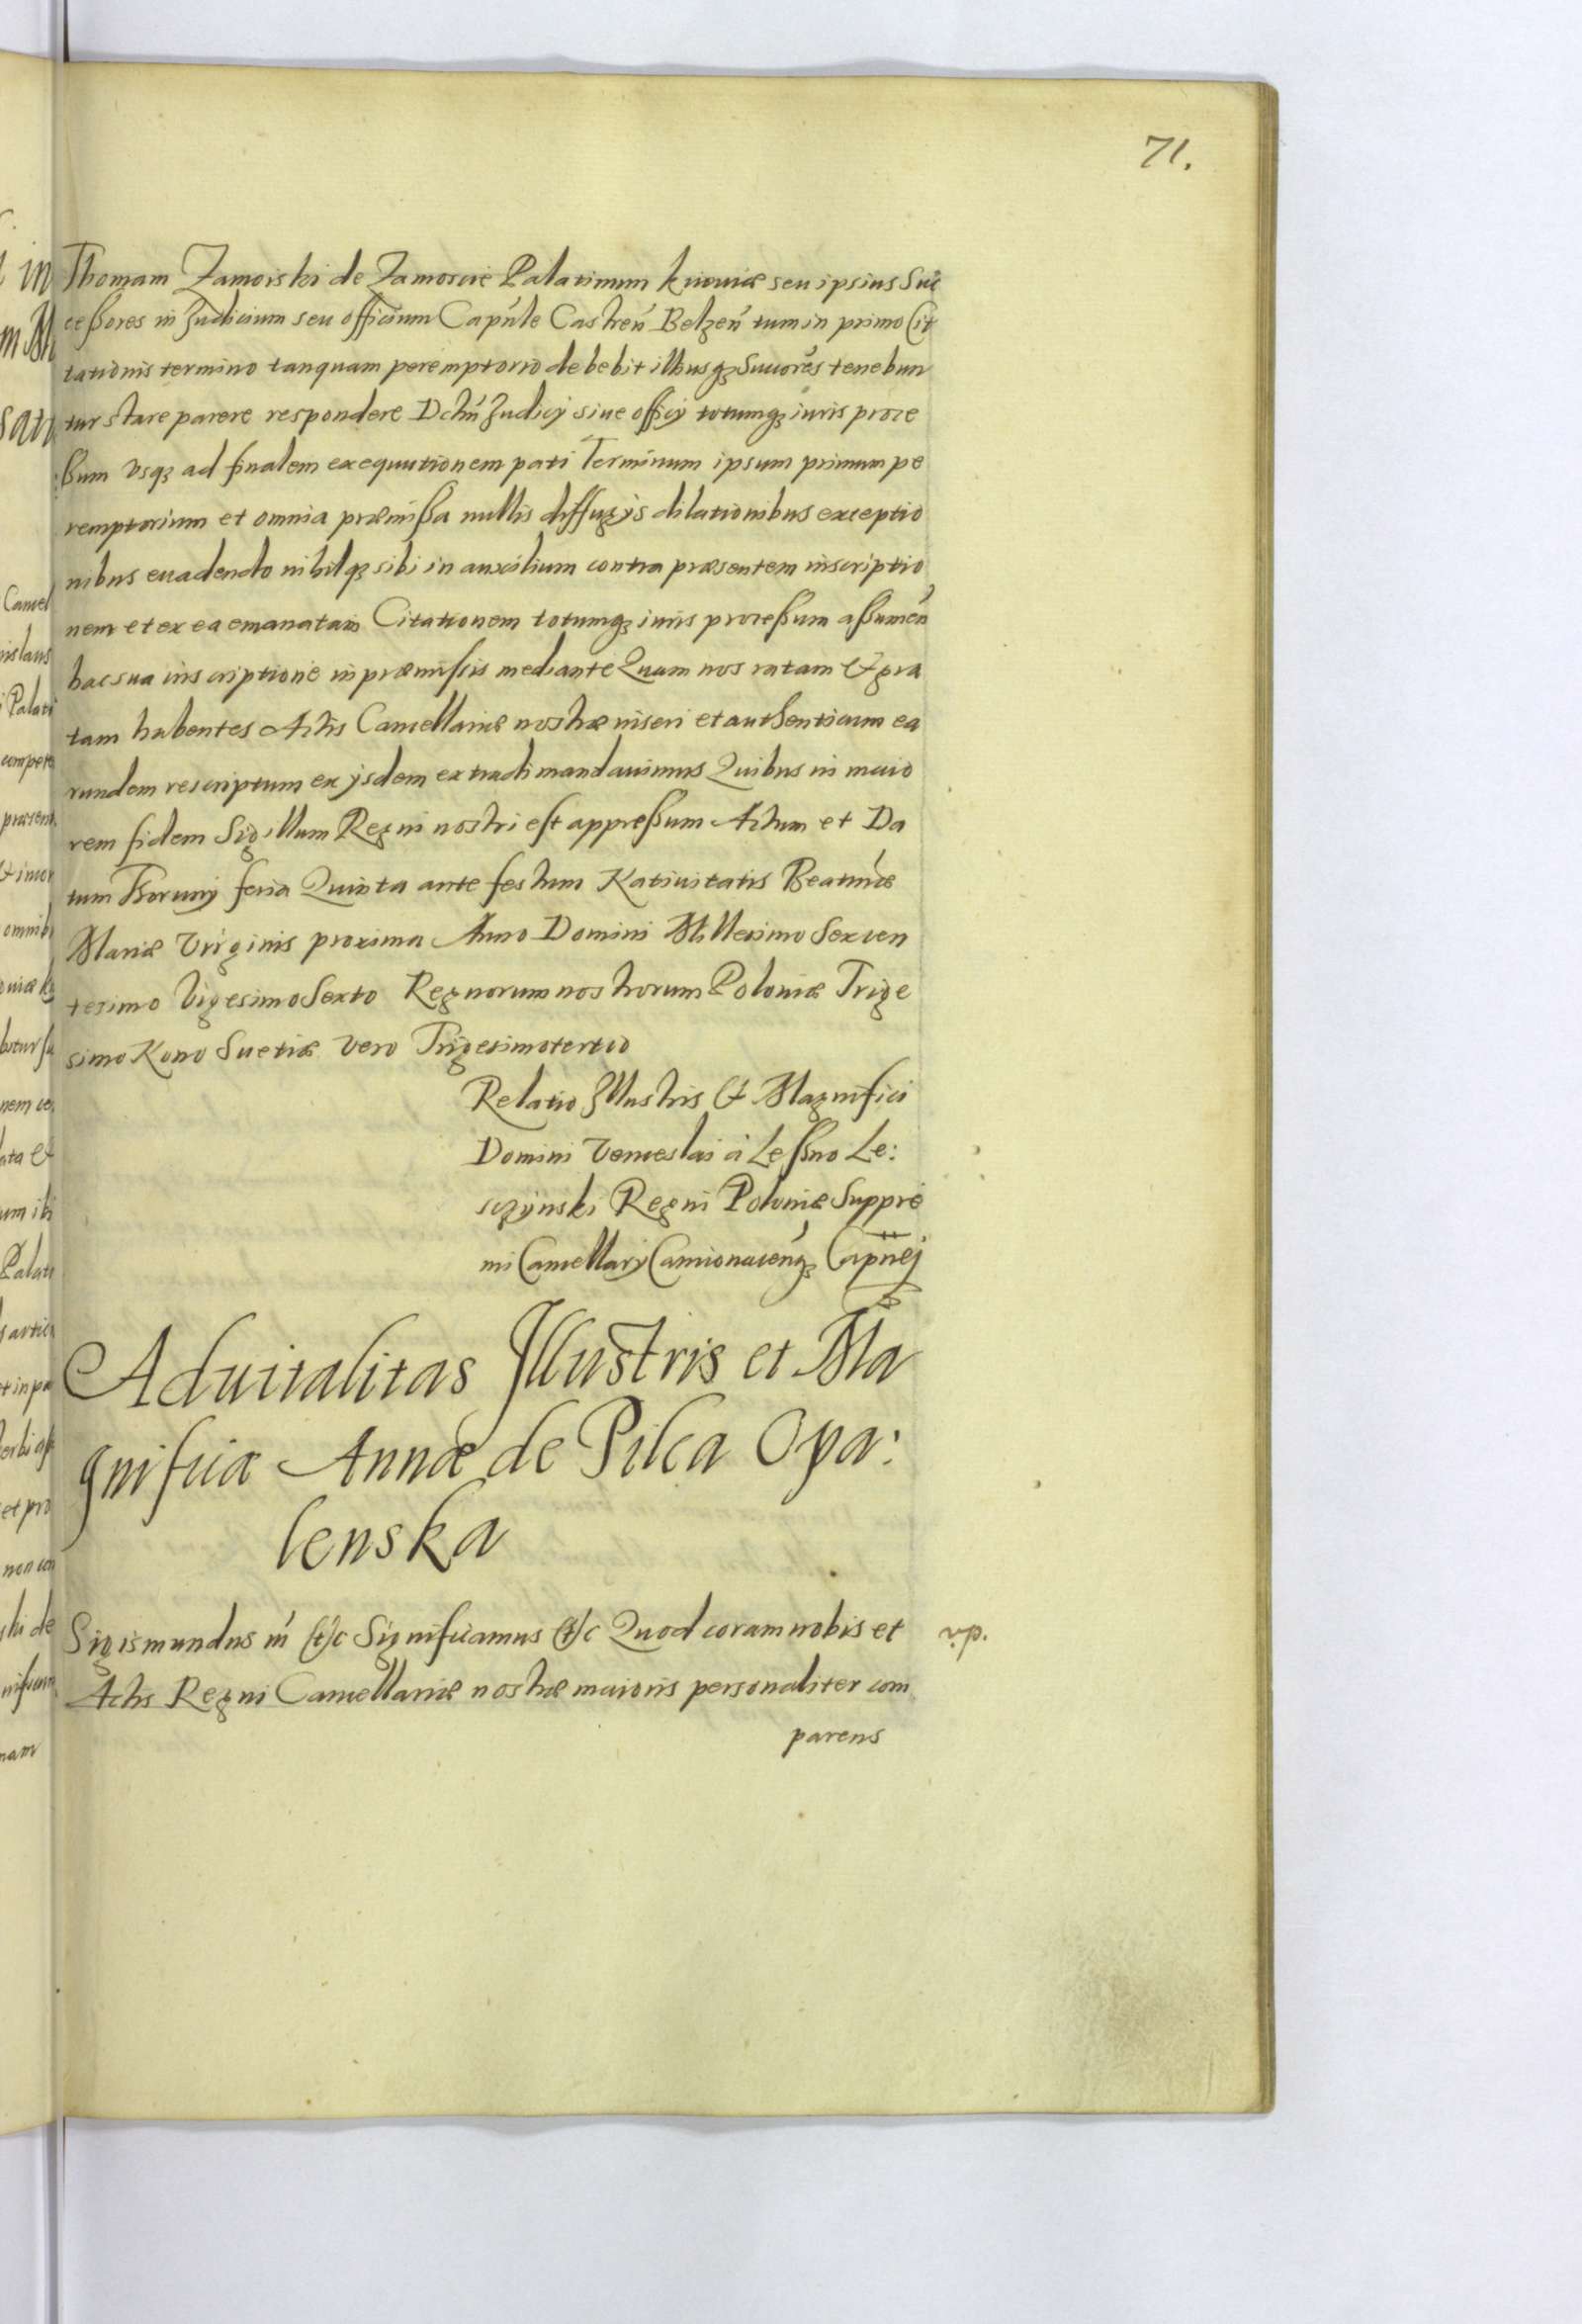 71.
Thomam Zamoiski de Zamoscie Palatinum Kiouiæ seu ipsius Suc
cessores in Iudicium seu officium Capńle Castreń Belzeń tum in primo Cit
tationis termino tanquam peremptorio debebit illiusq; Succores tenebun
tur stare parere respondere Dctiń Iudicij siue officij totumq; iuris proce
ssum vsq; ad finalem exequutionem pati Terminum ipsum primum pe
remptorium et omnia præmissa nullis diffugijs dilationibus exceptio
nibus euadendo nihilq; sibi in auxilium contra præsentem inscriptio
nem et ex ea emanatam Citationem totumq; iuris processum assumeń
hac sua inscriptione in præmissis mediante Quam nos ratam & gra
tam habentes Actis Cancellariæ nostræ inseri et authenticum ea
rundem rescriptum ex ijsdem extradi mandauimus Quibus in maio
rem fidem Sigillum Regni nostri est appressum Actum et Da
tum Thorunij feria Quinta ante festum Natiuitatis Beatmæ
Mariæ Virginis proxima Anno Domini Millesimo Sexcen
tesimo Vigesimo Sexto Regnorum nostrorum Poloniæ Trige
simo Nono Suetiæ vero Trigesimotertio
Relatio Illustris & Magnifici
Domini Venceslai à Lessno Le:
sczynski Regni Poloniæ Suppre
mi Cancellarij Camionaceńq; Capnej
Aduitalitas Illustris et Ma
gnificæ Annæ de Pilca Opa:
lenska
Sigismundus iń &c Significamus &c Quod coram nobis et
Actis Regni Cancellariæ nostræ maioris personaliter com
parens